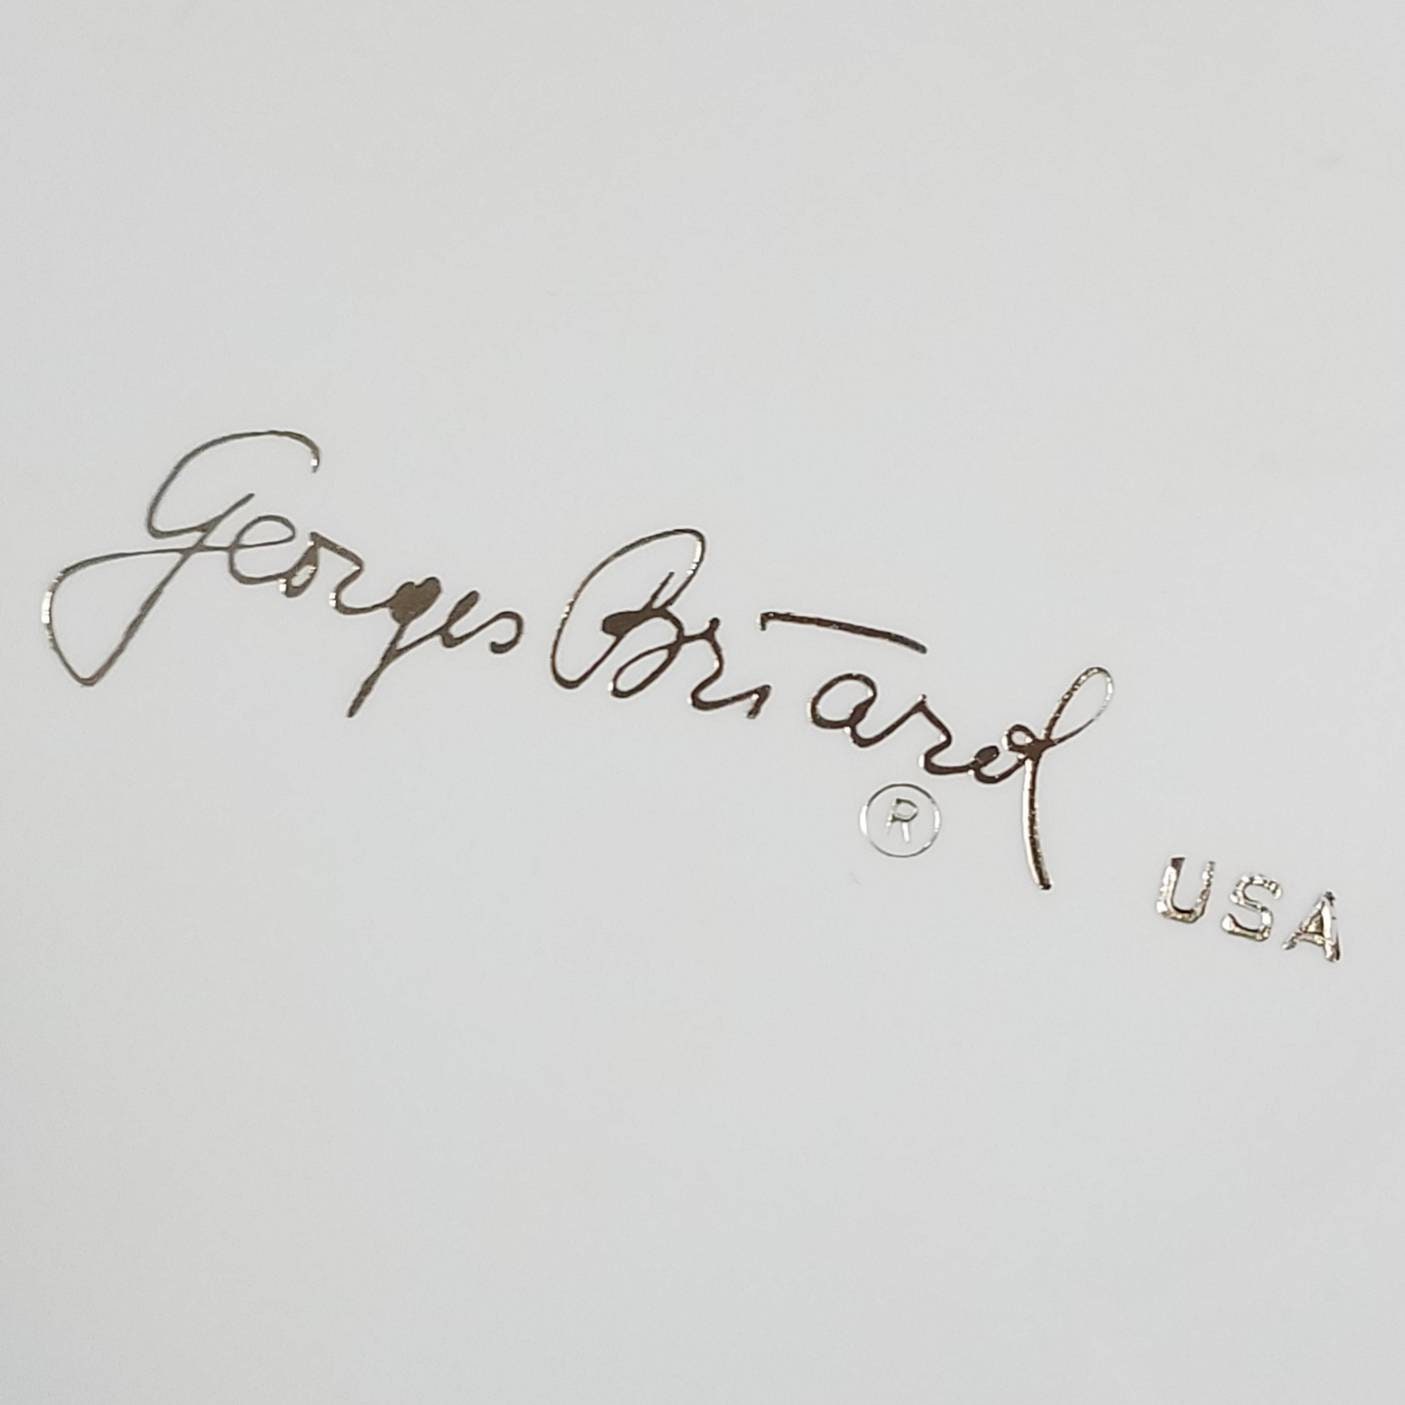 Georges Briard
®
USA